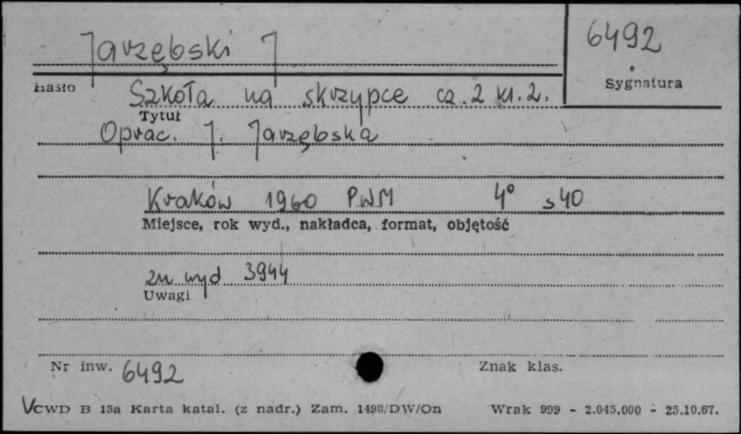 Jarzębski J
6492
Sygnatura
Hasło
Szkoła na skrzypce cz. 2 kl. 2.
Tytuł
Oprac. J. Jarzębska
Kraków 1960 PWM 4° s 40
Miejsce, rok wyd., nakładca, format, objętość
zn wyd 3944
Uwagi
Nr inw. 6492
Znak klas.
VCWD B 15a Karta katal. (z nadr.) Zam. 1498/DW/On Wrak 999 - 2.045.000 - 23.10.67.